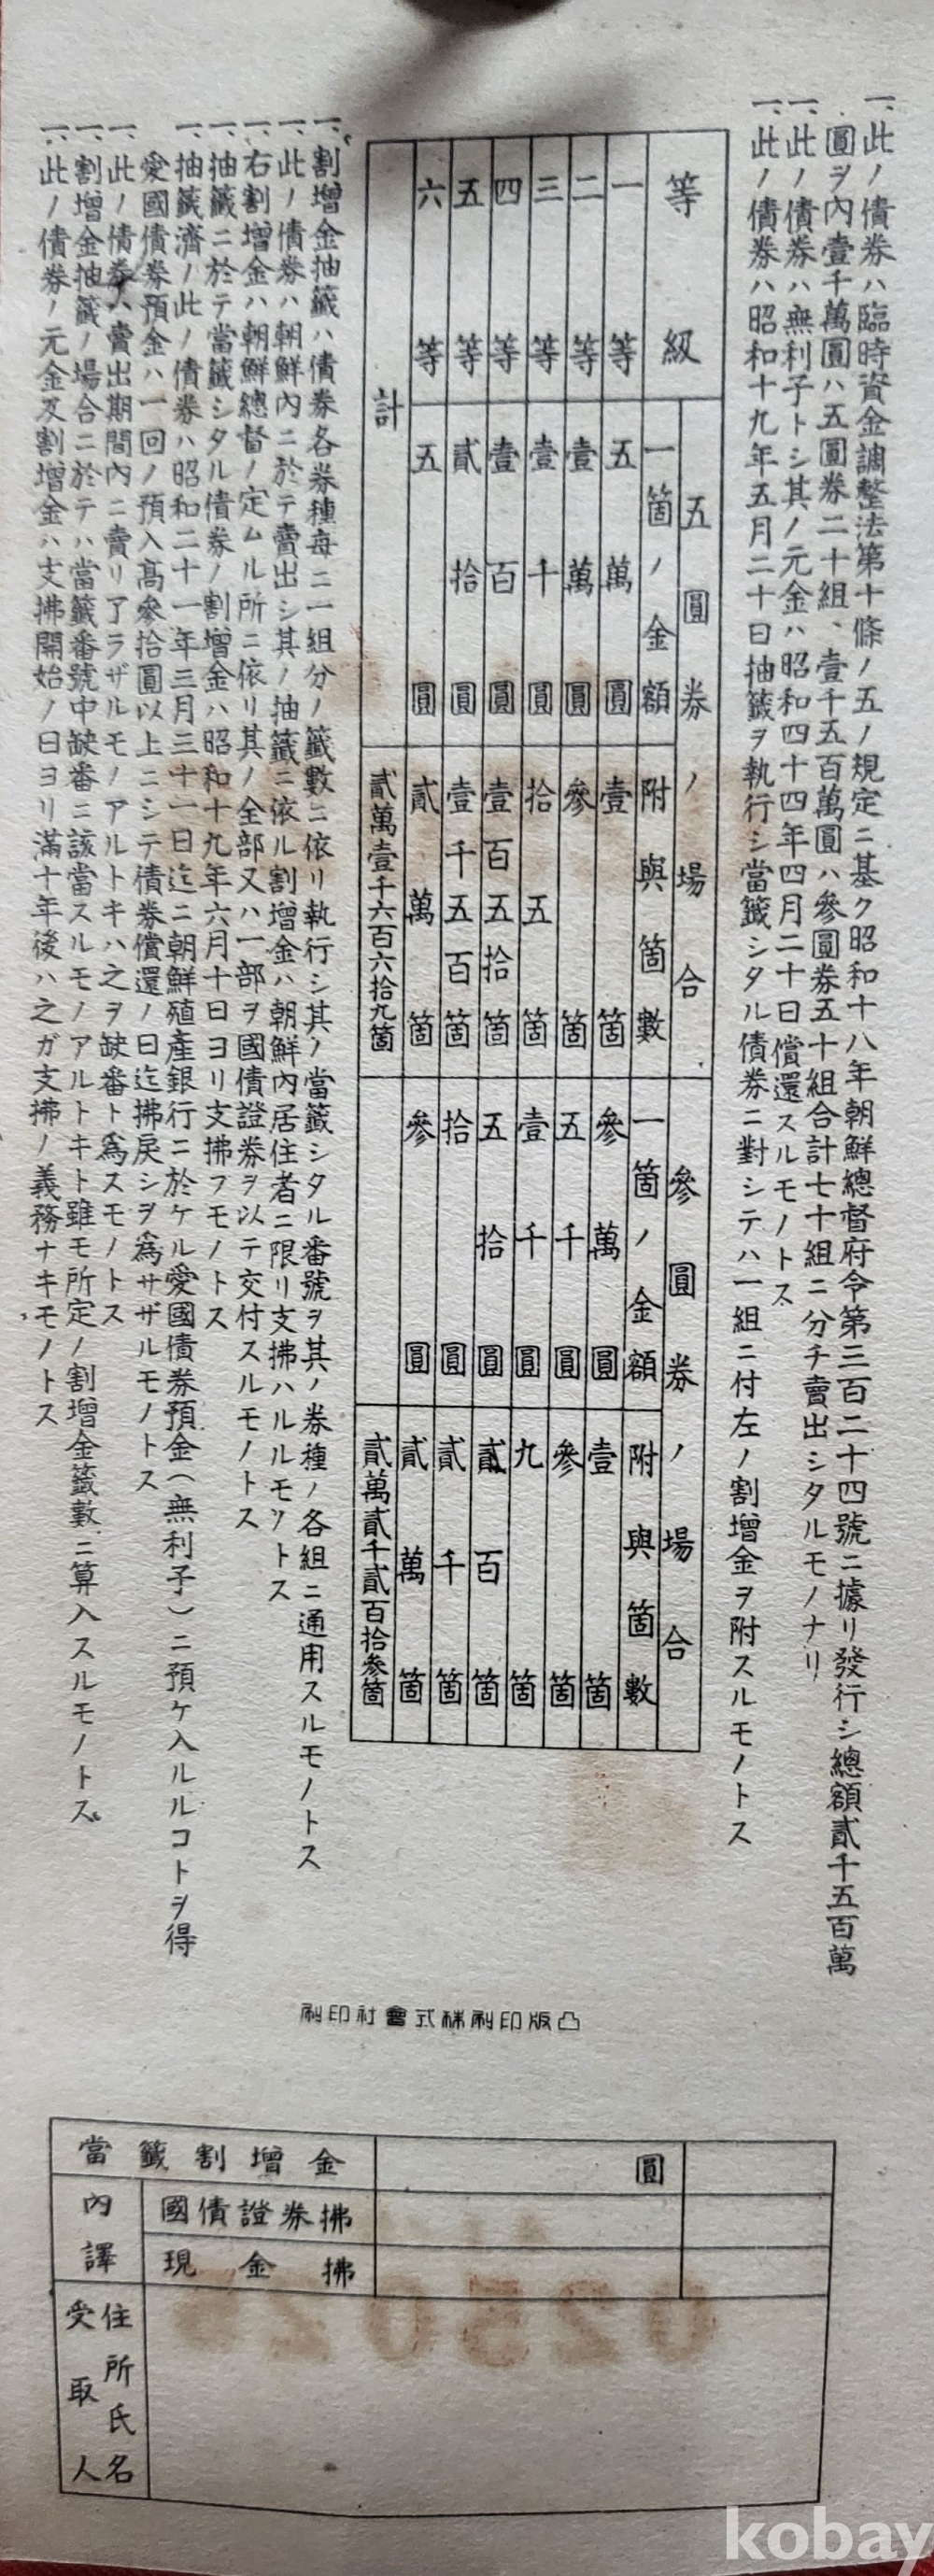 一、此ノ債券ハ臨時資金調整法第十條ノ五ノ規定ニ基ク昭和十八年朝鮮總督府令第三百二十四號ニ據リ發行シ總額貳千五百萬
圓ヲ內壹千萬圓ハ五圓券二十組、壹千五百萬圓ハ參圓券五十組合計七十組ニ分チ賣出シタルモノナリ
一、此ノ債券ハ無利子トシ其ノ元金ハ昭和四十四年四月二十日償還スルモノトス
一、此ノ債券ハ昭和十九年五月二十日抽籤ヲ執行シ當籤シタル債券ニ對シテハ一組ニ付左ノ割增金ヲ附スルモノトス
等級 五圓券ノ場合 參圓券ノ場合
一箇ノ金額 附與箇數 一箇ノ金額 附與箇數
一等 五萬圓 壹箇 參萬圓 壹箇
二等 壹萬圓 參箇 五千圓 參箇
三等 壹千圓 拾五箇 壹千圓 九箇
四等 壹百圓 壹百五拾箇 五拾圓 貳百箇
五等 貳拾圓 壹千五百箇 拾圓 貳千箇
六等 五圓 貳萬箇 參圓 貳萬箇
計 貳萬壹千六百六拾九箇 貳萬貳千貳百拾參箇
一、割增金抽籤ハ債券各券種每ニ一組分ノ籤數ニ依リ執行シ其ノ當籤シタル番號ヲ其ノ券種ノ各組ニ通用スルモノトス
一、此ノ債券ハ朝鮮內ニ於テ賣出シ其ノ抽籤ニ依ル割增金ハ朝鮮內居住者ニ限リ支拂ハルルモノトス
一、右割增金ハ朝鮮總督ノ定ムル所ニ依リ其ノ全部又ハ一部ヲ國債證券ヲ以テ交付スルモノトス
一、抽籤ニ於テ當籤シタル債券ノ割增金ハ昭和十九年六月十日ヨリ支拂フモノトス
一、抽籤濟ノ此ノ債券ハ昭和二十一年三月三十一日迄ニ朝鮮殖產銀行ニ於ケル愛國債券預金(無利子)ニ預ケ入ルルコトヲ得
愛國債券預金ハ一回ノ預入高參拾圓以上ニシテ債券償還ノ日迄拂戾シヲ爲サザルモノトス
一、此ノ債券ハ賣出期間內ニ賣リ了ラザルモノアルトキハ之ヲ缺番ト爲スモノトス
一、割增金抽籤ノ場合ニ於テハ當籤番號中缺番ニ該當スルモノアルトキト雖モ所定ノ割增金籤數ニ算入スルモノトス
一、此ノ債券ノ元金及割增金ハ支拂開始ノ日ヨリ滿十年後ハ之ガ支拂ノ義務ナキモノトス
刷印社會式株刷印版凸
當籤割增金 圓
內譯 國債證券拂
現金拂
受取人 住所氏名
025025
kobay